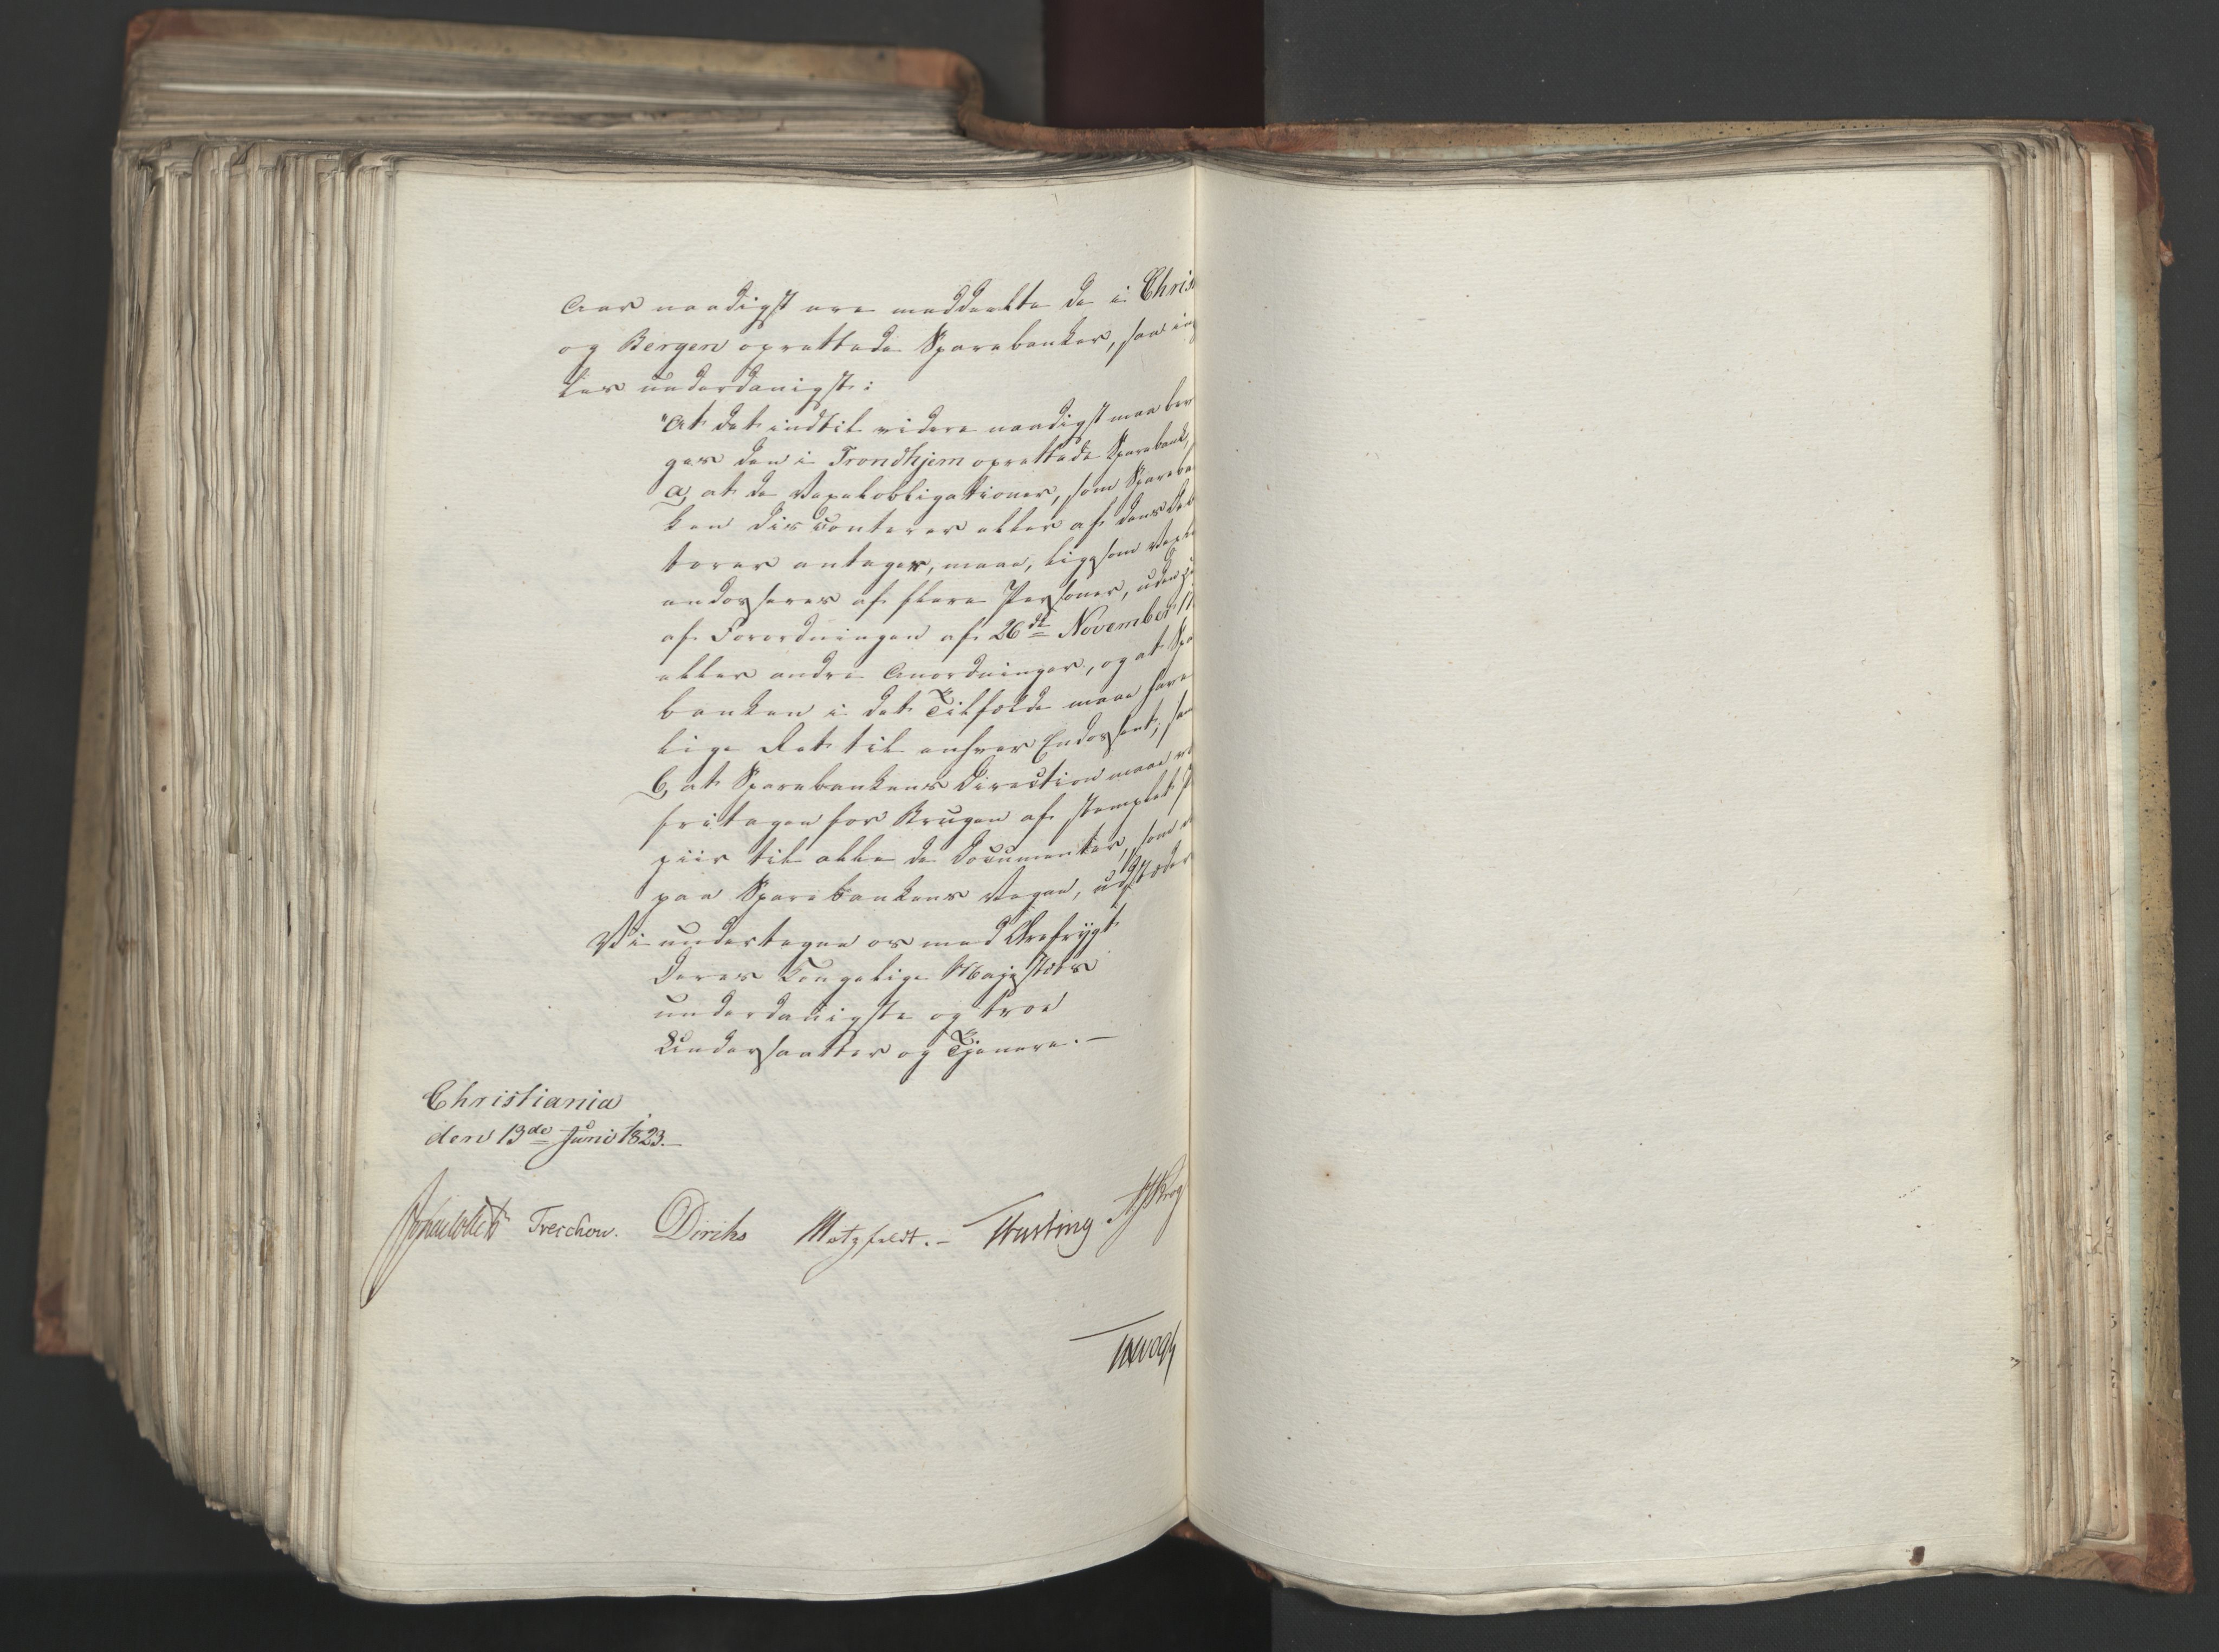 Aar naadigst ere meddeelte de i Chris
og Bergen oprettede Sparebanker, saa
les underdanigst:
"At det indtil videre naadigst maa
ges den i Trondhjem oprettede Sparebank,
a, at de Vexelobligationer, som Spareba
ken disconterer eller af dens Deb
torer antager, maae, ligesom Vexle
endosseres af flere Personer, uden
af Forordningen af 26de November
eller andre Anordninger, og at Spa
banken i det Tilfælde maae have
lige Ret til enhver Endossent; sam
b, at Sparebankens Direction maae
fritagen for Brugen af stemplet P
piir til alle de Documenter, som
paa Sparebankens Vegne, udstæder
Vi undertegne os med Ærefrygt
Deres Kongelige Majestæts
underdanigste og troe
Undersaatter og Tjenere.—
Christiania
den 13de Juni 1823.—
Treschow. Diriks Motzfeldt.— Fasting Krog